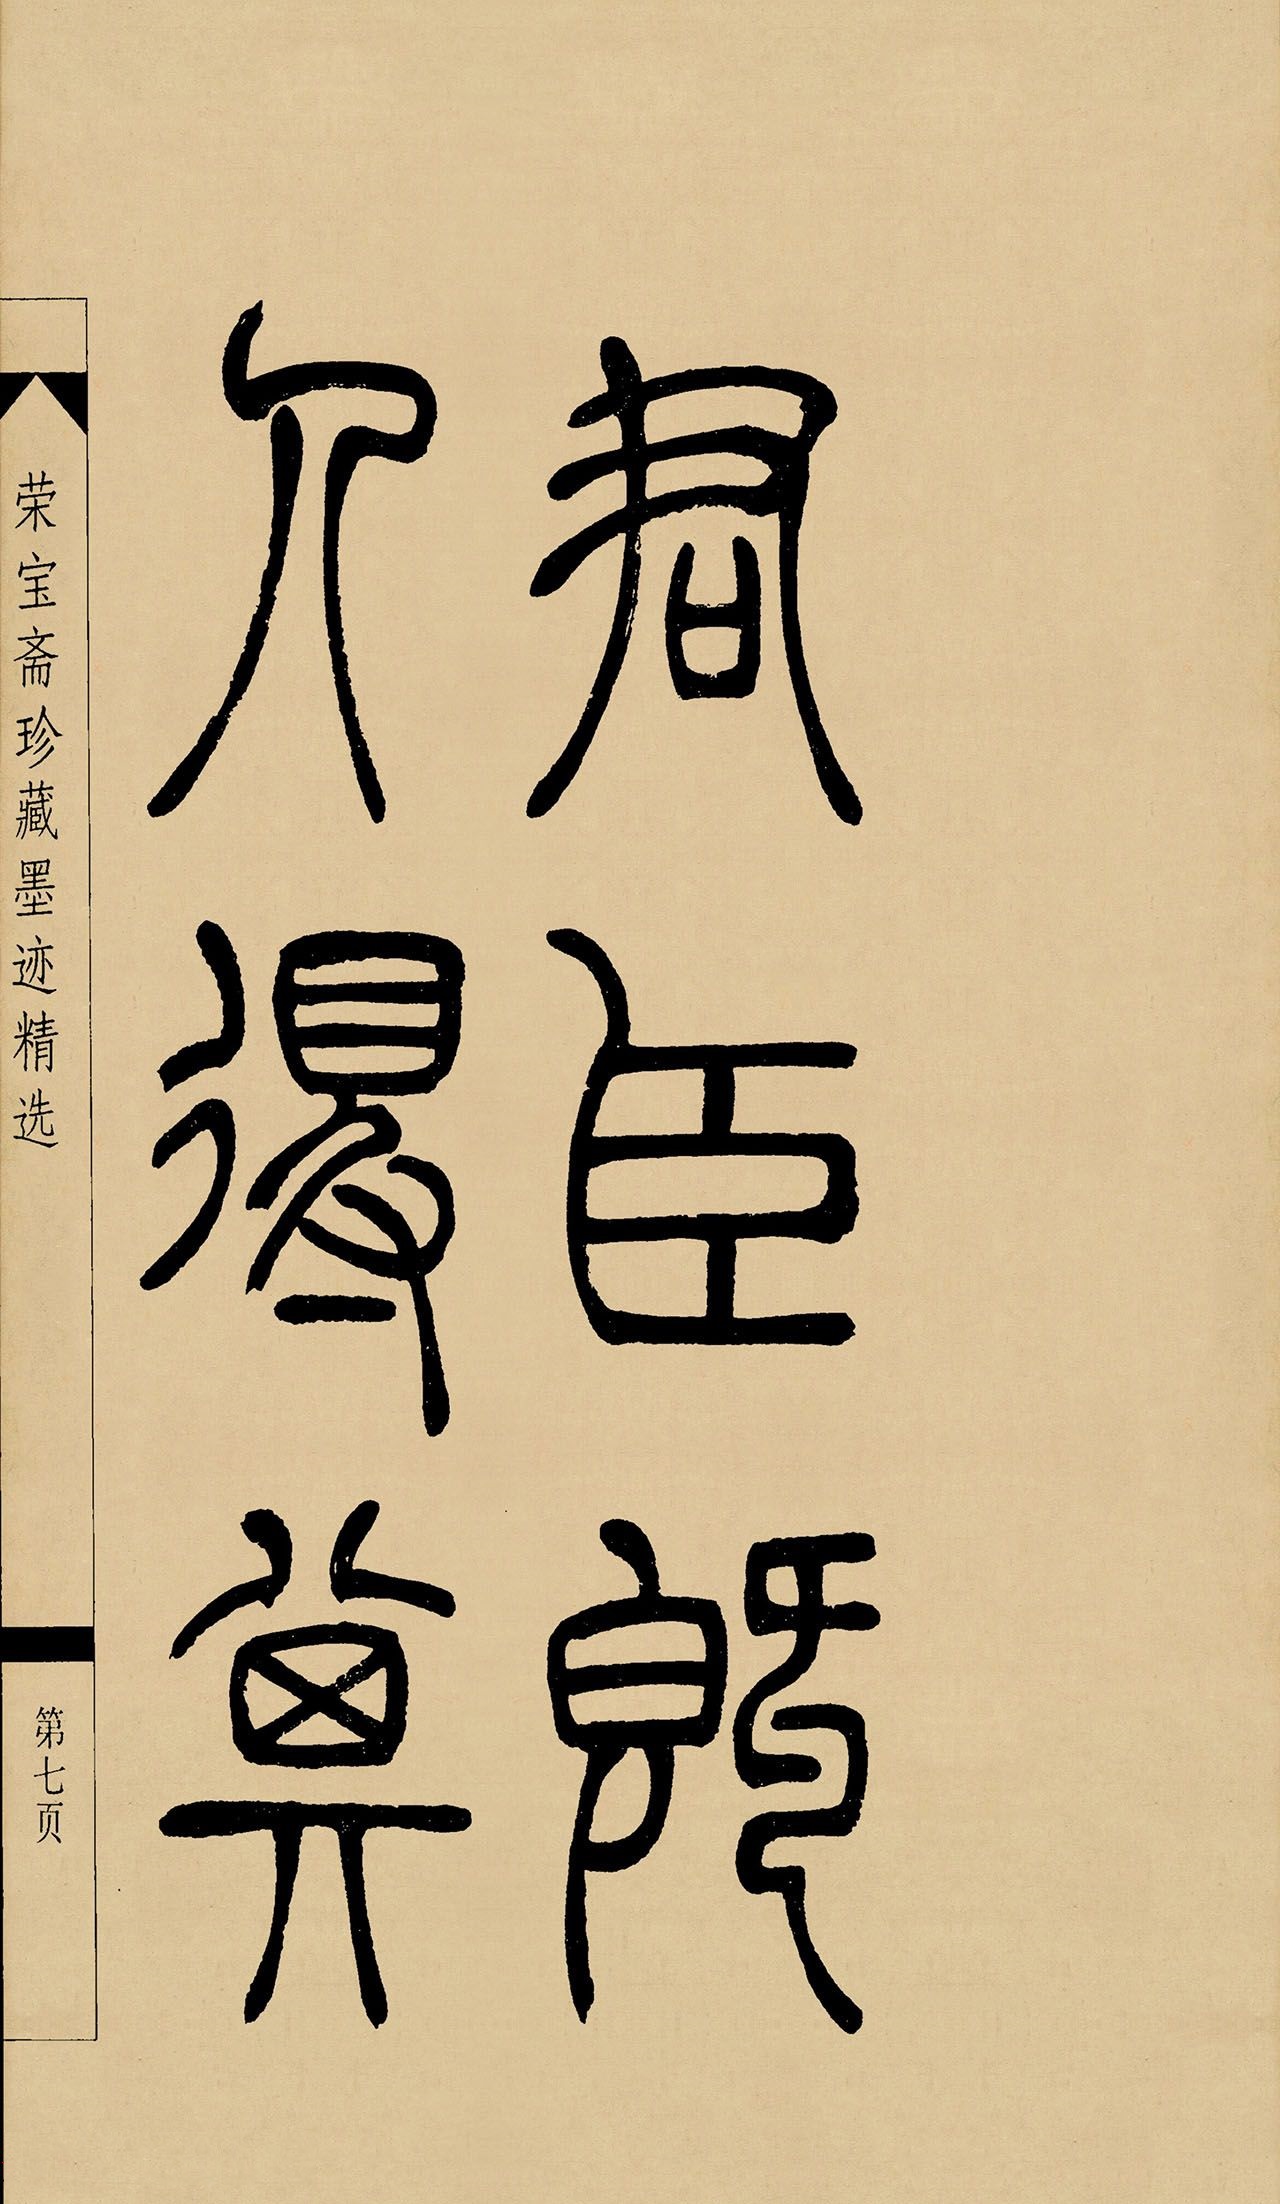 君臣既
久得
荣宝斋珍藏墨迹精选
第七页